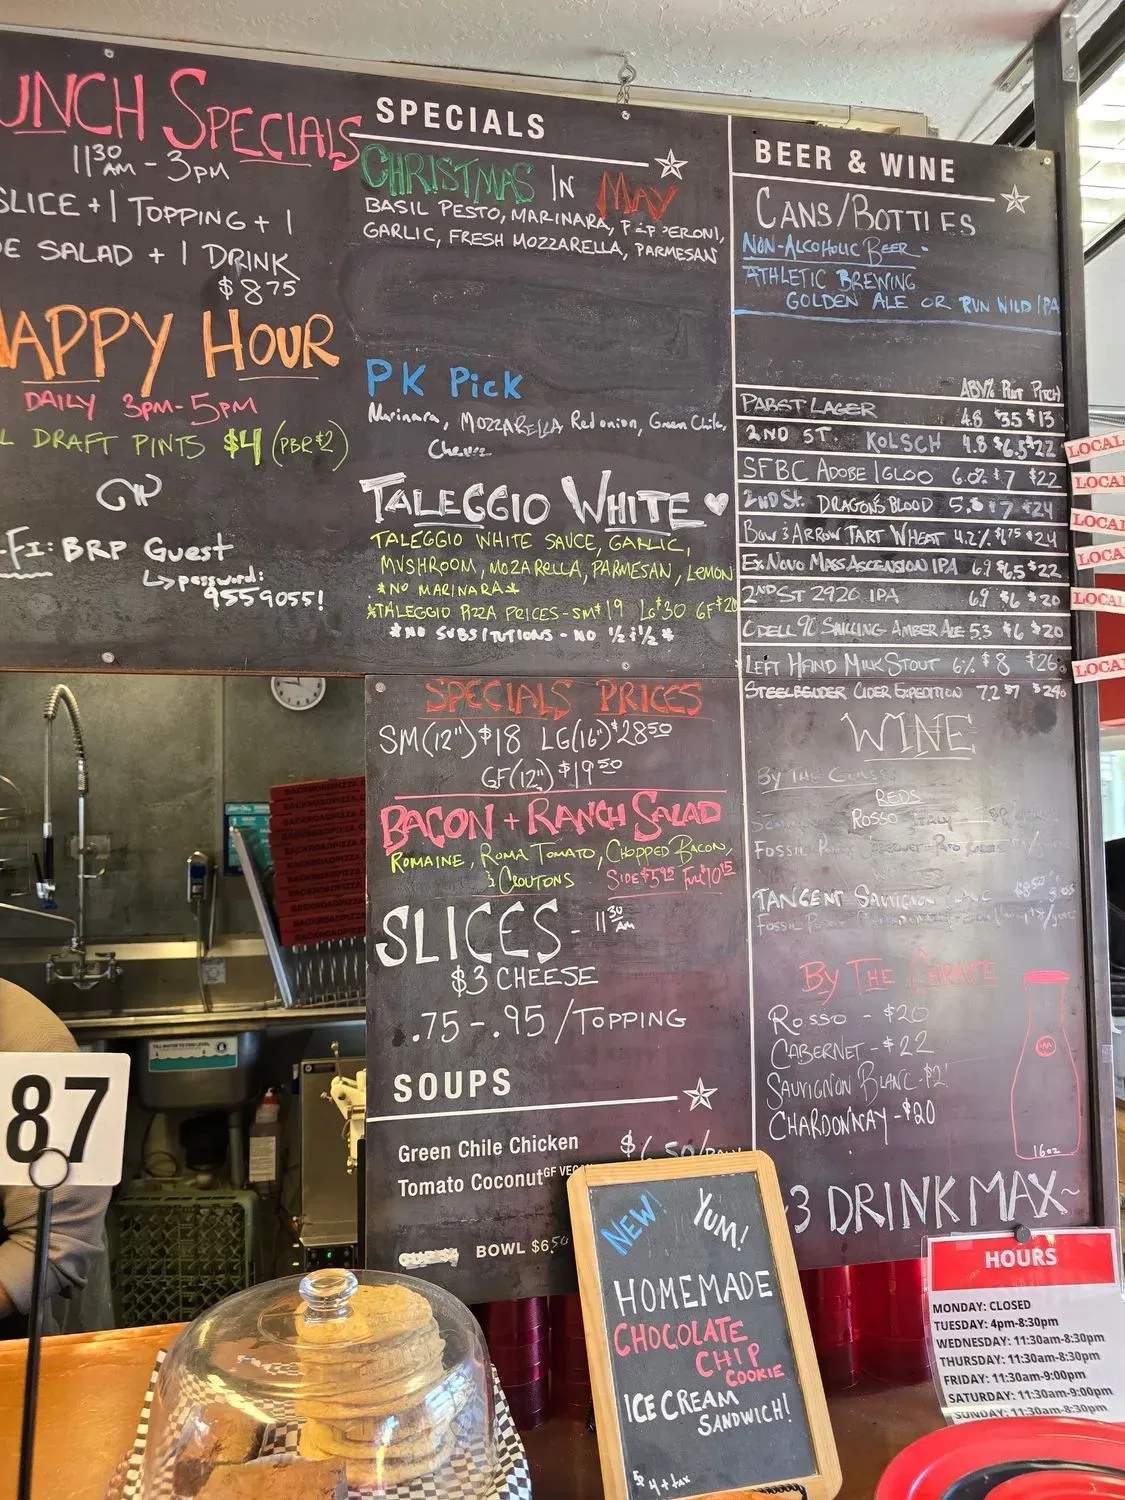 UNCH SPECIALS
11 30 AM - 3PM
SLICE + 1 TOPPING + 1
DE SALAD + 1 DRINK
$8 75
HAPPY HOUR
DAILY 3PM-5PM
L DRAFT PINTS $4 (PBR $2)
-FI: BRP Guest
password:
9559055!
SPECIALS
CHRISTMAS IN MAY
BASIL PESTO, MARINARA, PEPPERONI,
GARLIC, FRESH MOZZARELLA, PARMESAN
PK Pick
Marinara, MOZZARELLA Red onion, Green Chile,
TALEGGIO WHITE
TALEGGIO WHITE SAUCE, GARLIC,
MUSHROOM, MOZARELLA, PARMESAN, LEMON
*NO MARINARA*
*TALEGGIO PIZZA PRICES - SM $19 LG $30 GF $20
*NO SUBSITUTIONS - NO ½ & ½ *
SPECIALS PRICES
SM(12") $18 LG(16") $28 50
GF(12") $19 50
BACON + RANCH SALAD
ROMAINE, ROMA TOMATO, CHOPPED BACON,
& CROUTONS SIDE $5 95 FULL $10 95
SLICES - 11 30 AM
$3 CHEESE
.75 - .95 / TOPPING
SOUPS
Green Chile Chicken $6.50/
Tomato Coconut GF VEGAN
BOWL $6.50
BEER & WINE
CANS/BOTTLES
NON-ALCOHOLIC BEER -
ATHLETIC BREWING
GOLDEN ALE OR RUN WILD IPA
ABV% PINT PITCH
PABST LAGER 4.8 $3.5 $13
2ND ST. KOLSCH 4.8 $6.5 $22
SFBC ADOBE IGLOO 6.0% $7 $22
2ND ST. DRAGON'S BLOOD $7 $24
BOW & ARROW TART WHEAT 4.2% $24
EX NOVO MASS ASCENSION IPA 6.9 $6.5 $22
2ND ST 2920 IPA 6.9 $6 $20
ODELL 90 SHILLING AMBER ALE 5.3 $6 $20
LEFT HAND MILK STOUT 6% $8 $26
STEELBENDER CIDER EXPEDITION 7.2 $7 $24
LOCAL
LOCAL
LOCAL
LOCAL
LOCAL
LOCAL
WINE
BY THE GLASS
REDS
ROSSO ITALY
FOSSIL POINT
TANGENT SAUVIGNON BLANC
FOSSIL POINT
BY THE CARAFE
ROSSO - $20
CABERNET - $22
SAUVIGNON BLANC - $2
CHARDONNAY - $20
16oz
3 DRINK MAX~
BACKROADPIZZA.CO
87
NEW! YUM!
HOMEMADE
CHOCOLATE
CHIP
COOKIE
ICE CREAM
SANDWICH!
+ tax
HOURS
MONDAY: CLOSED
TUESDAY: 4pm-8:30pm
WEDNESDAY: 11:30am-8:30pm
THURSDAY: 11:30am-8:30pm
FRIDAY: 11:30am-9:00pm
SATURDAY: 11:30am-9:00pm
SUNDAY: 11:30am-8:30pm